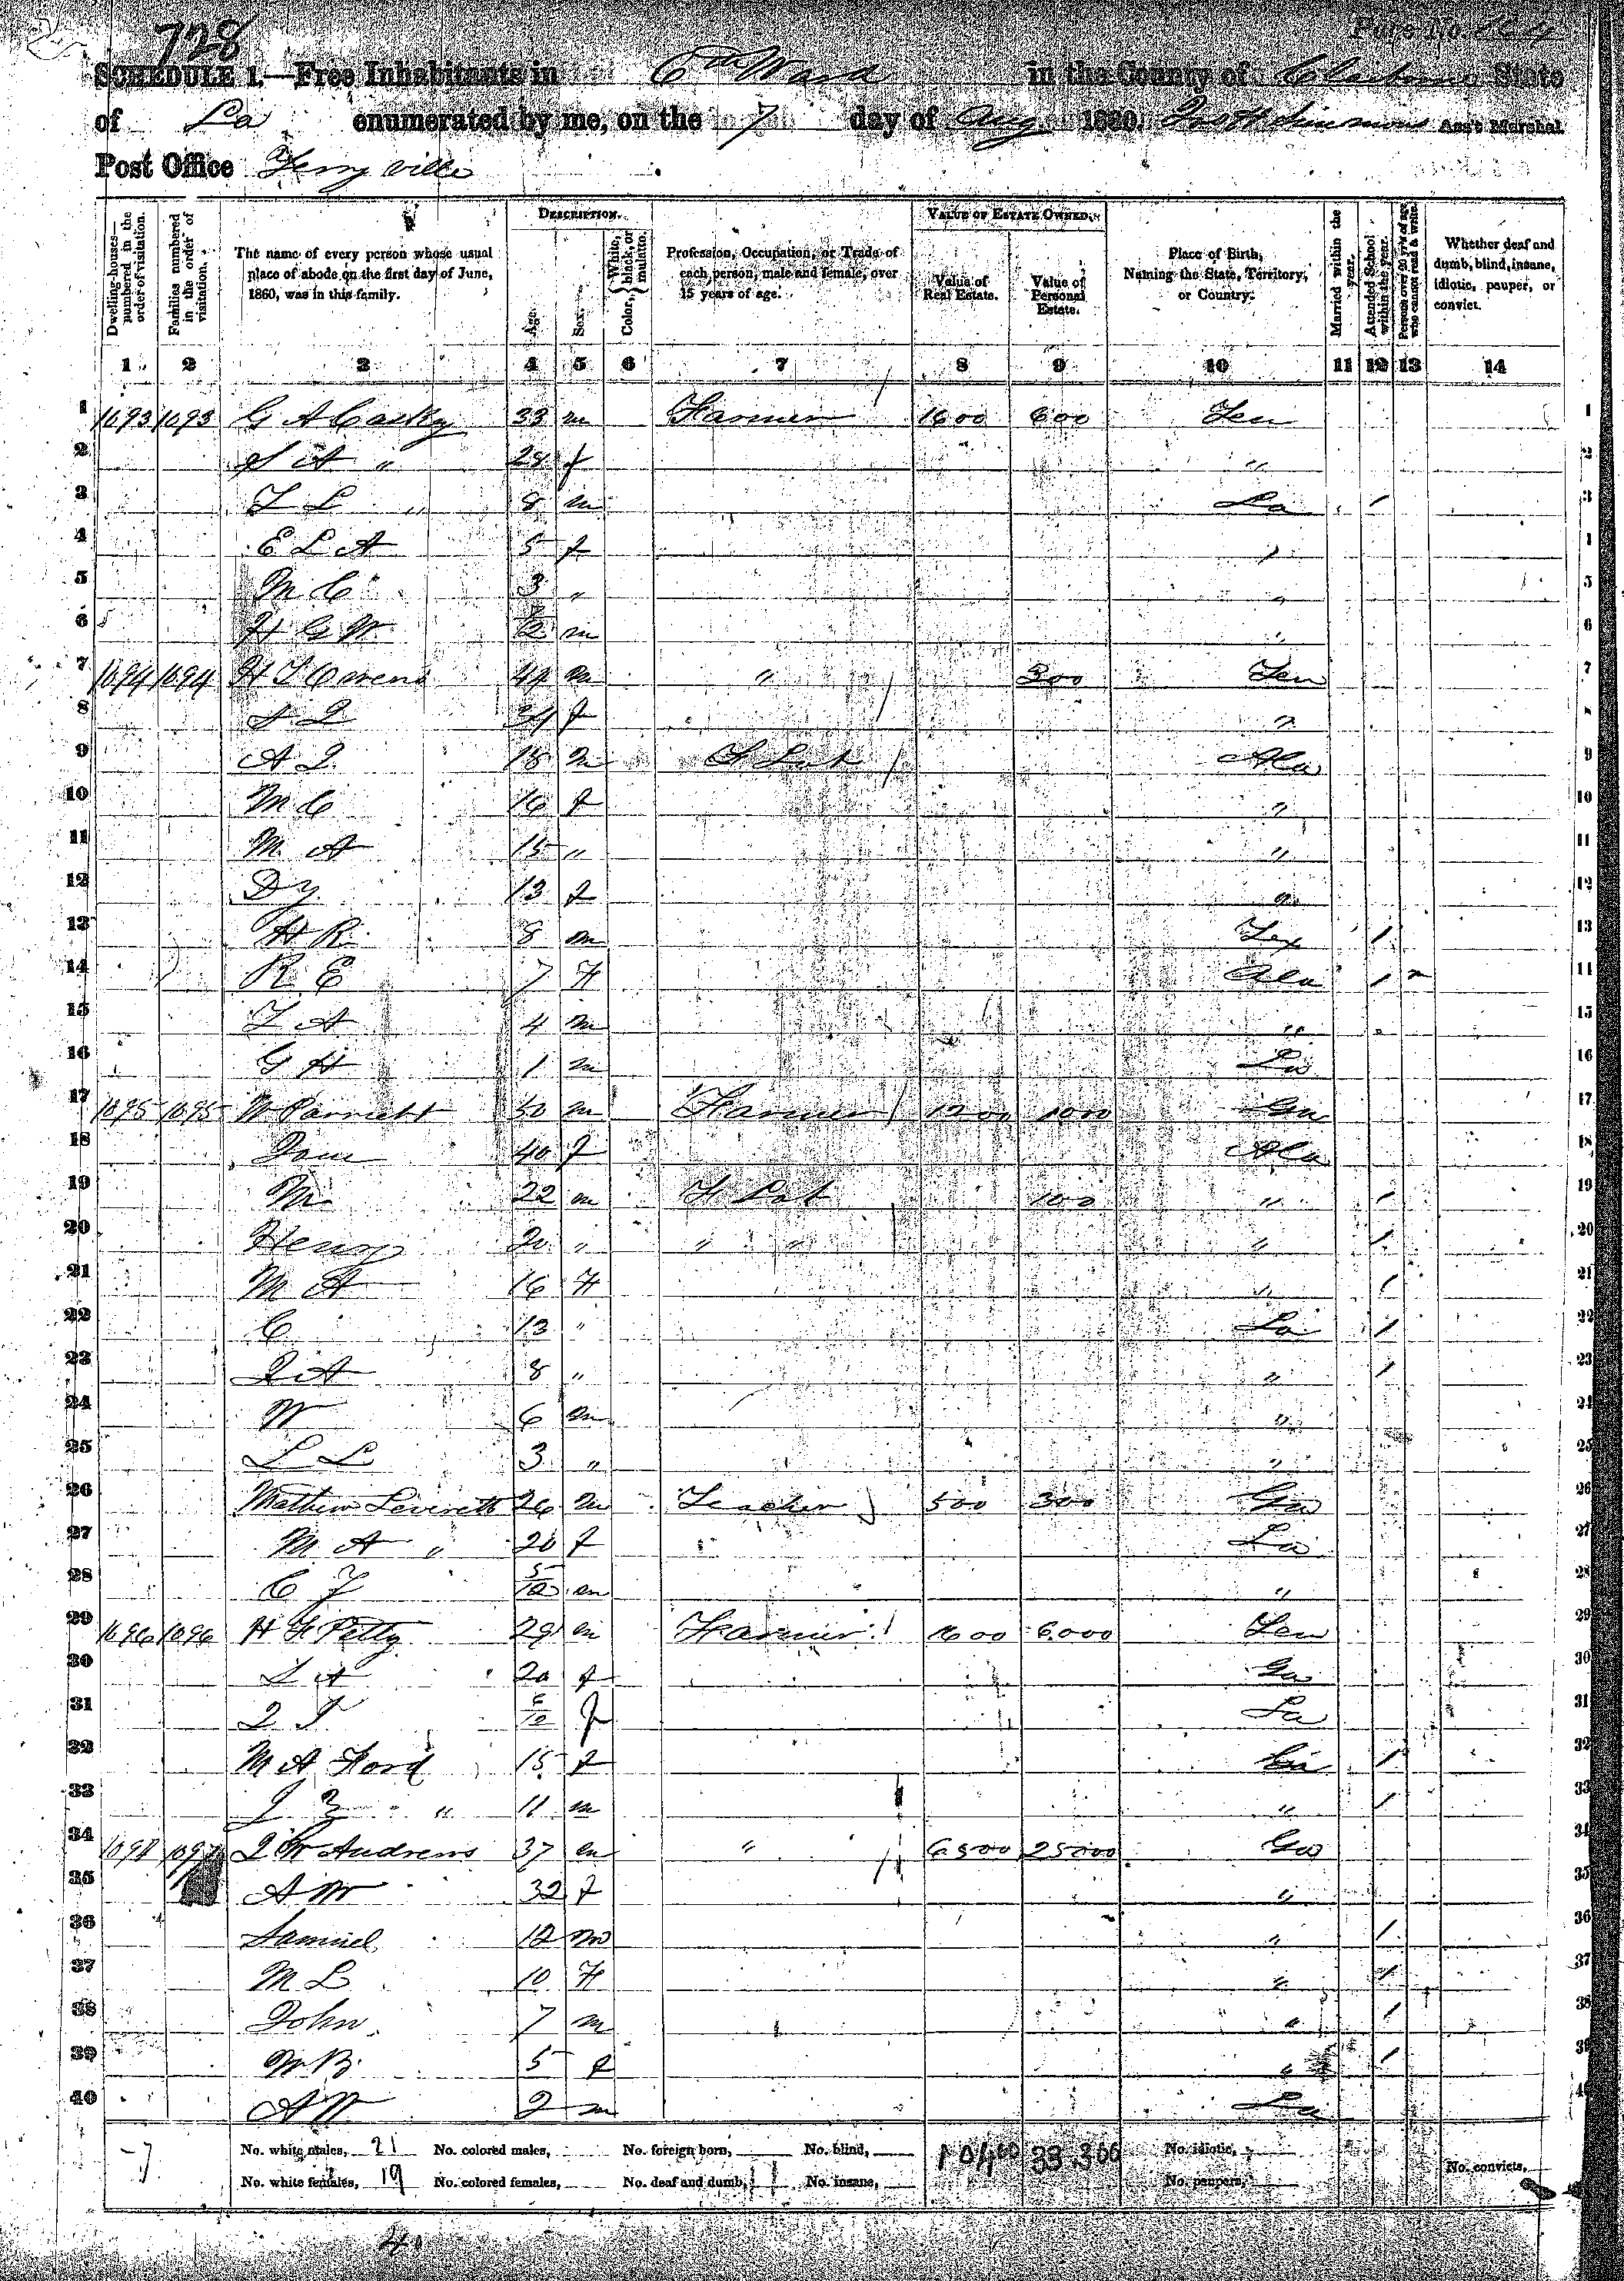 728
SCHEDULE 1.—Free Inhabitants in 6th Ward in the County of Claiborne State
of La enumerated by me, on the 7 day of Aug 1860. Ass't Marshal.
Post Office
Dwelling-houses—numbered in the order of visitation.
Families numbered in the order of visitation.
The name of every person whose usual place of abode on the first day of June, 1860, was in this family.
DESCRIPTION.
Age.
Sex.
Color, { White, black, or mulatto.
Profession, Occupation, or Trade of each person, male and female, over 15 years of age.
VALUE OF ESTATE OWNED.
Value of Real Estate.
Value of Personal Estate.
Place of Birth, Naming the State, Territory, or Country.
Married within the year.
Attended School within the year.
Persons over 20 y'rs of age who cannot read & write.
Whether deaf and dumb, blind, insane, idiotic, pauper, or convict.
1 2 3 4 5 6 7 8 9 10 11 12 13 14
1 1093 1093 G A 33 m Farmer 1600 600 Ten 1
2 S A " 28 f " 2
3 T L " 8 m La / 3
4 E L A 5 f " 4
5 M C " 3 " " 5
6 H G W m " 6
7 1094 1094 H T Owens 44 m " 300 Ten 7
8 34 f " 8
9 A J 18 m F Lab Ala 9
10 M C 16 f " 10
11 M A 15 " " 11
12 Dy 13 f " 12
13 H R 8 m Tex / 13
14 R E 7 F Ala / 14
15 T A 4 m " 15
16 G H 1 m La 16
17 1095 1095 W Parrott 50 m Farmer 1200 1000 Ga 17
18 Jane 40 f Ala 18
19 M 22 m F Lab 100 " / 19
20 Henry 20 " " " " / 20
21 M A 16 F " / 21
22 C 13 " La / 22
23 J A 8 " " / 23
24 W 6 m " 24
25 L L 3 " " 25
26 Mathew Leverett 26 m Teacher 500 300 Ga 26
27 M A " 20 f La 27
28 C J 5/12 m " 28
29 1096 1096 H F Petty 29 m Farmer 1600 6000 Ten 29
30 S A 20 f Ga 30
31 f La 31
32 M A Ford 15 f / 32
33 J Z " 11 m " / 33
34 1097 1097 J W Andrews 37 m " 6500 25000 Ga 34
35 A M 32 f " 35
36 Samuel 12 m " / 36
37 M L 10 F " / 37
38 John 7 m " / 38
39 M B 5 f " / 39
40 A W 2 m La 40
No. white males, 21 No. colored males, No. foreign born, No. blind, 10400 33,300 No. idiotic,
No. white females, 19 No. colored females, No. deaf and dumb, No. insane, No. paupers, No. convicts,